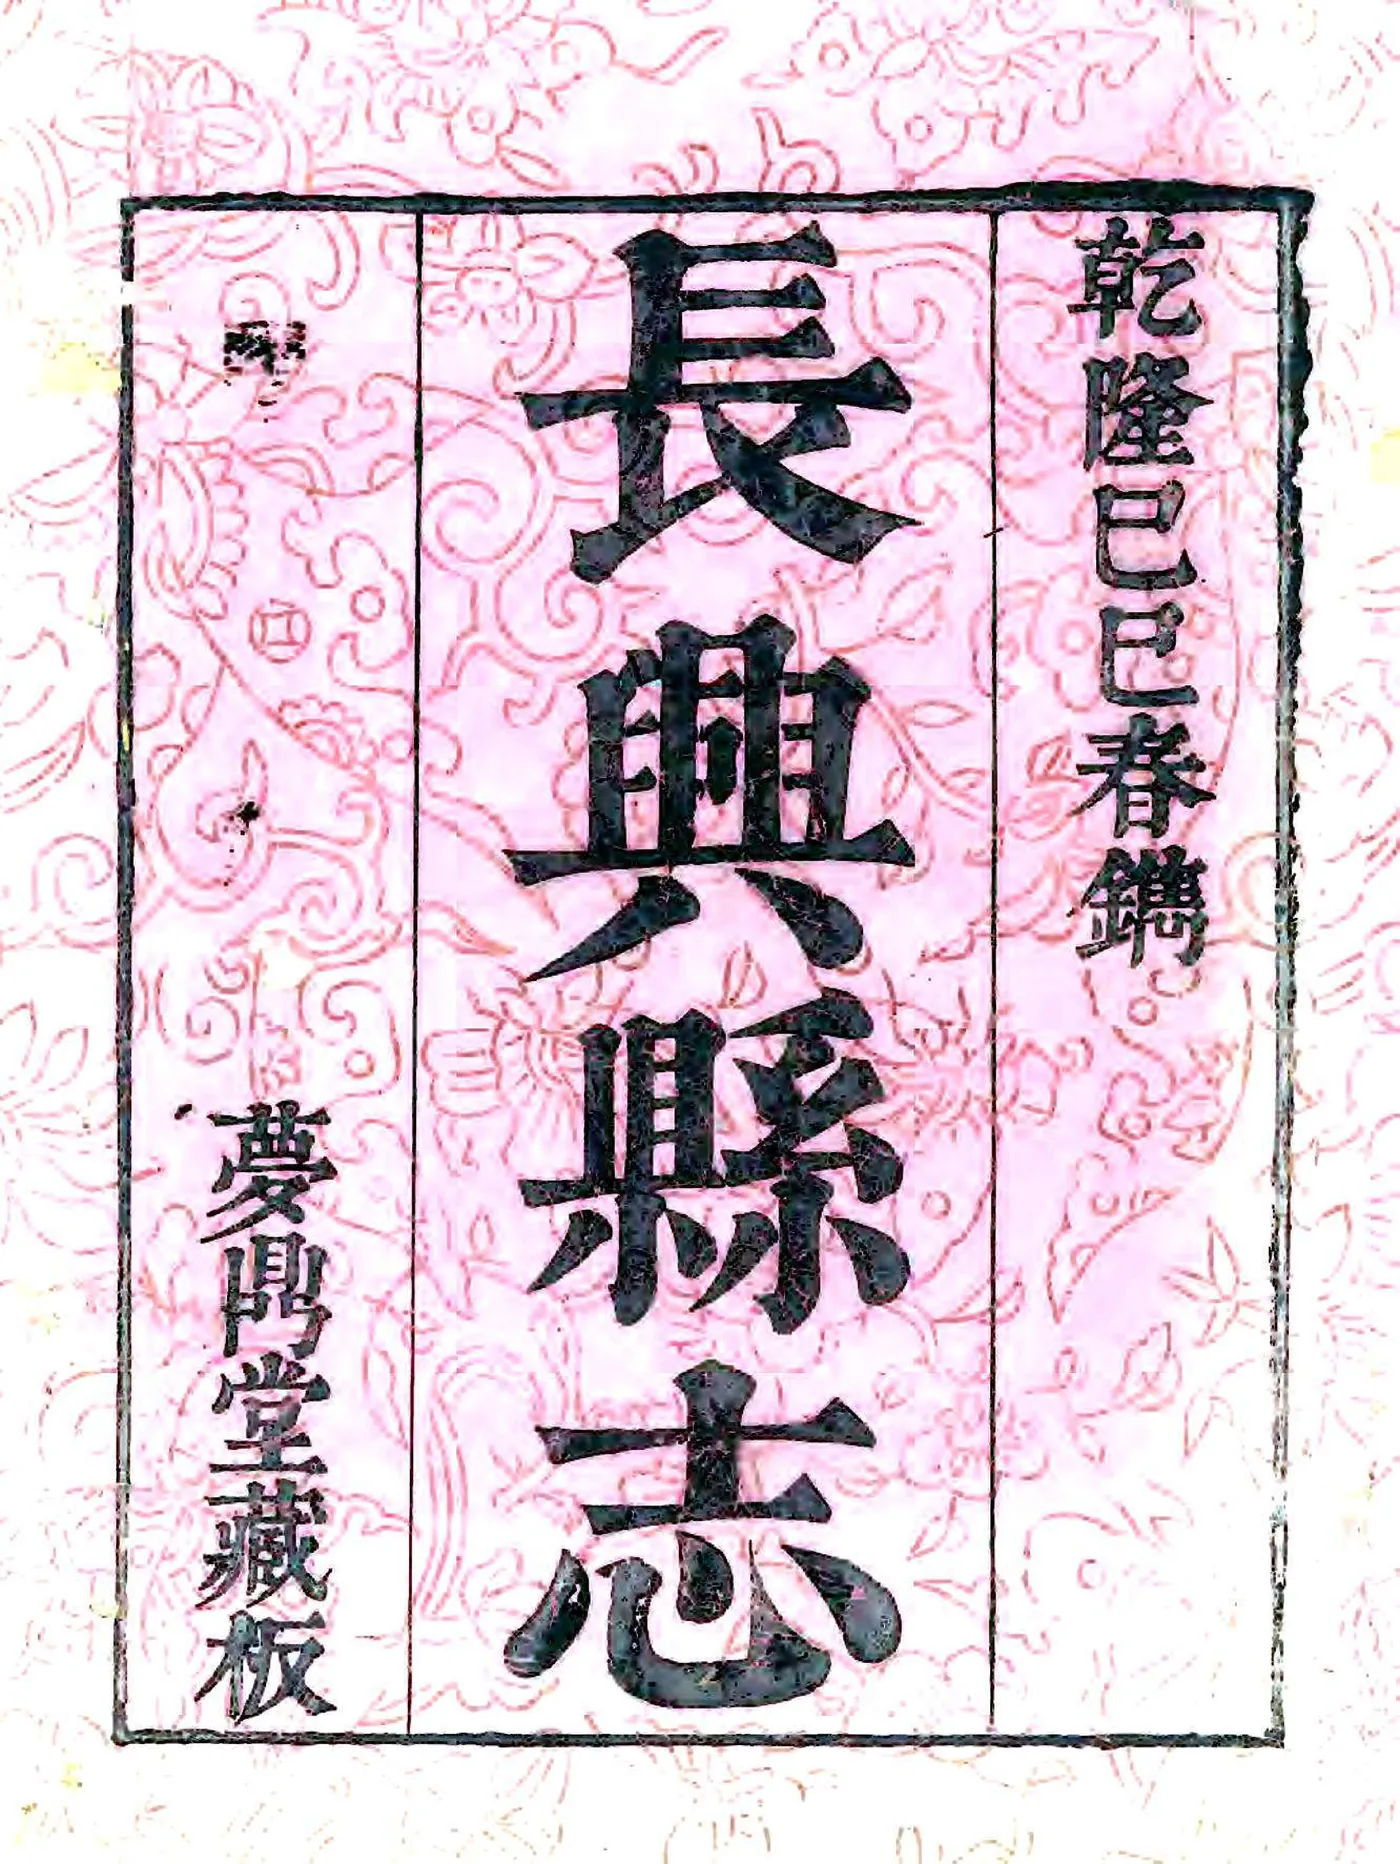 乾隆己巳春鐫
長興縣志
夢鼎堂藏板